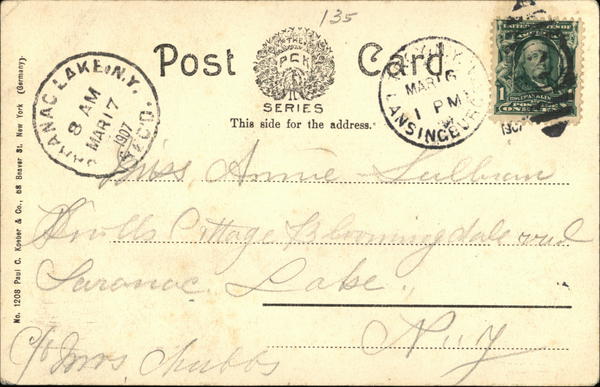 135
Post Card
THE
P C K
SERIES
This side for the address.
SARANAC LAKE, N.Y.
8 AM
MAR 17
1907
REC'D.
TROY, N.Y.
MAR 16
1 PM
LANSINGBURG
1907
1
FRANKLIN
Miss Annie Sullivan
Knolls Cottage Bloomingdale
Saranac Lake,
N.Y
c/o Mrs Chubbs
No. 1208 Paul C. Koeber & Co., 68 Beaver St. New York (Germany).